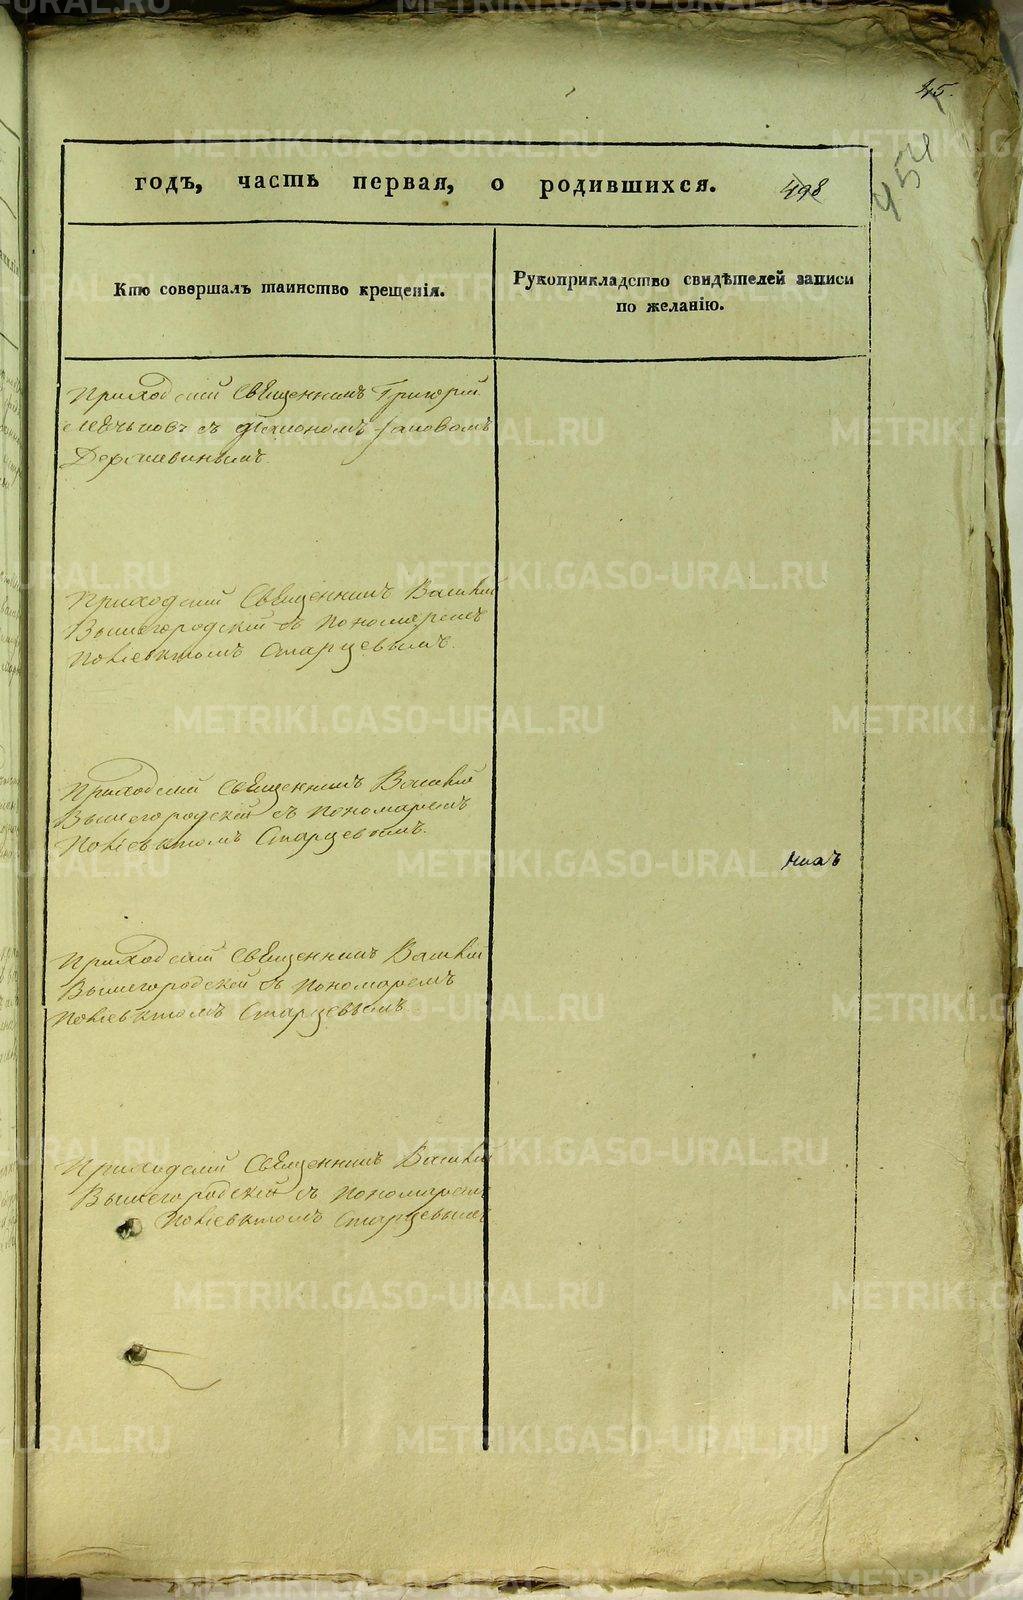 45.
454
годъ, часть первая, о родившихся. 498
Кто совершалъ таинство крещенія.
Рукоприкладство свидѣтелей записи
по желанію.
Приходскій Священникъ Григорій
съ Діакономъ Іаковомъ
Державинымъ.
Приходскій Священникъ Василій
Вышегородскій съ Пономаремъ
Поліевктомъ Старцевымъ.
Приходскій Священникъ Василій
Вышегородскій съ Пономаремъ
Поліевктомъ Старцевымъ.
Приходскій Священникъ Василій
Вышегородскій съ Пономаремъ
Поліевктомъ Старцевымъ.
Приходскій Священникъ Василій
Вышегородскій съ Пономаремъ
Поліевктомъ Старцевымъ
METRIKI.GASO-URAL.RU